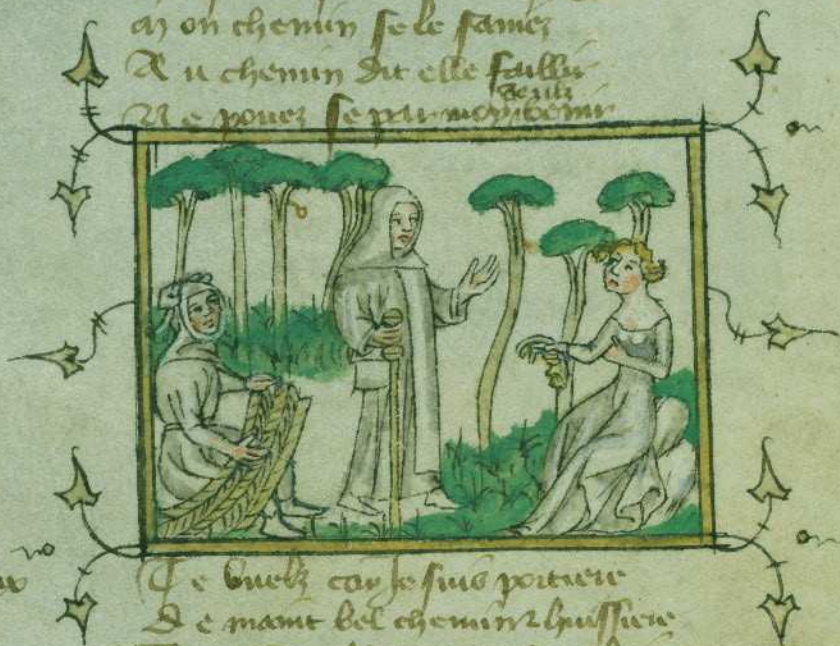 on chemin se le saviez
Au chemin dit elle faillir
Ne povez se par moy venir
Te vuelz car Je suis portiere
De maint bel chemin huissiere